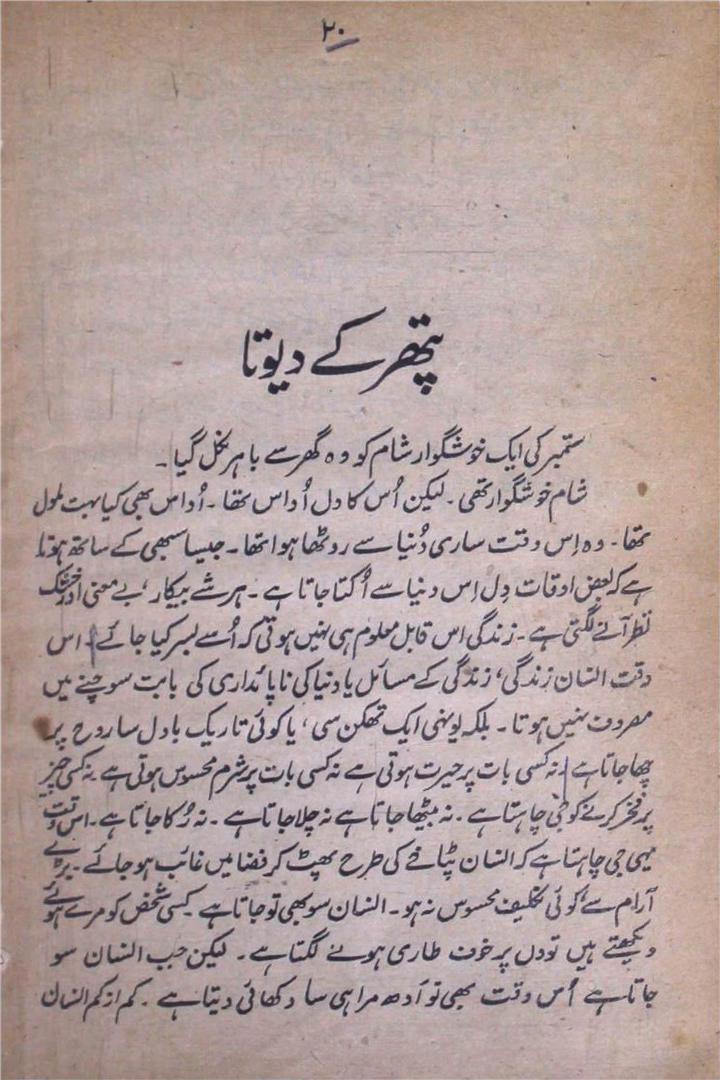 ۲۰
پتھر کے دیوتا
ستمبر کی ایک خوشگوار شام کو وہ گھر سے باہر نکل گیا۔
شام خوشگوار تھی۔ لیکن اُس کا دل اُداس تھا۔ اُداس بھی کیا بہت ملول
تھا۔ وہ اِس وقت ساری دُنیا سے روٹھا ہوا تھا۔ جیسا سبھی کے ساتھ ہوتا
ہے کہ بعض اوقات دِل اِس دنیا سے اُکتا جاتا ہے۔ ہر شے بیکار، بے معنی اور خشک
نظر آنے لگتی ہے۔ زندگی اس قابل معلوم ہی نہیں ہوتی کہ اُسے بسر کیا جائے۔ اس
وقت انسان زندگی، زندگی کے مسائل یا دنیا کی ناپائداری کی بابت سوچنے میں
مصروف نہیں ہوتا۔ بلکہ یونہی ایک تھکن سی، یا کوئی تاریک بادل سا روح پر
چھا جاتا ہے نہ کسی بات پر حیرت ہوتی ہے نہ کسی بات پر شرم محسوس ہوتی ہے نہ کسی چیز
پر فخر کرنے کو جی چاہتا ہے۔ نہ بیٹھا جاتا ہے نہ چلا جاتا ہے۔ نہ رُکا جاتا ہے۔ اس وقت
یہی جی چاہتا ہے کہ انسان پٹاخے کی طرح پھٹ کر فضا میں غائب ہو جائے۔ بڑے
آرام سے، کوئی تکلیف محسوس نہ ہو۔ انسان سو بھی تو جاتا ہے کسی شخص کو مرے ہوئے
دیکھتے ہیں تو دل پر خوف طاری ہونے لگتا ہے۔ لیکن جب انسان سو
جاتا ہے اُس وقت بھی تو آدھ مرا ہی سا دکھائی دیتا ہے۔ کم از کم انسان